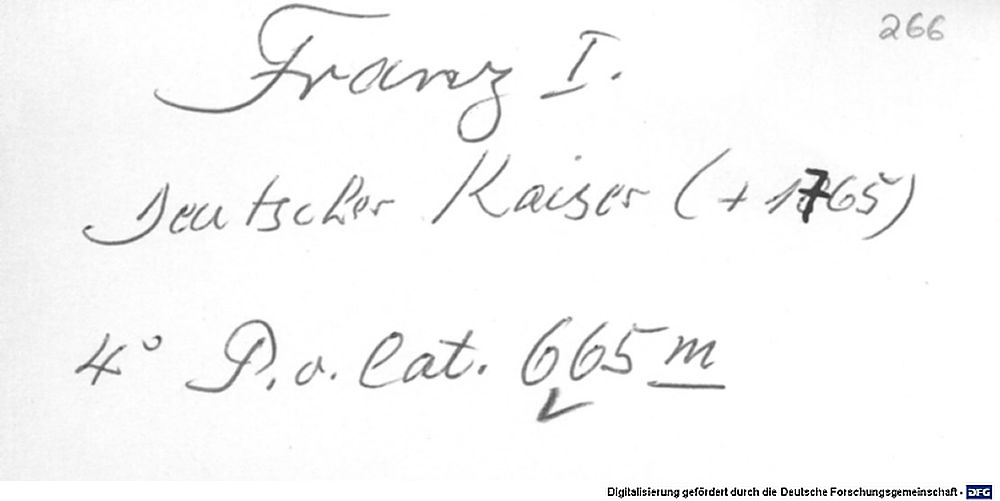 266
Franz I.
Deutscher Kaiser (+ 1765)
4° P. o. lat. 665 m
Digitalisierung gefördert durch die Deutsche Forschungsgemeinschaft - DFG